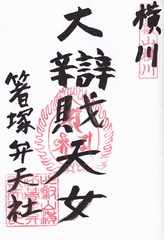 横川
大辯財天女
箸塚弁天社